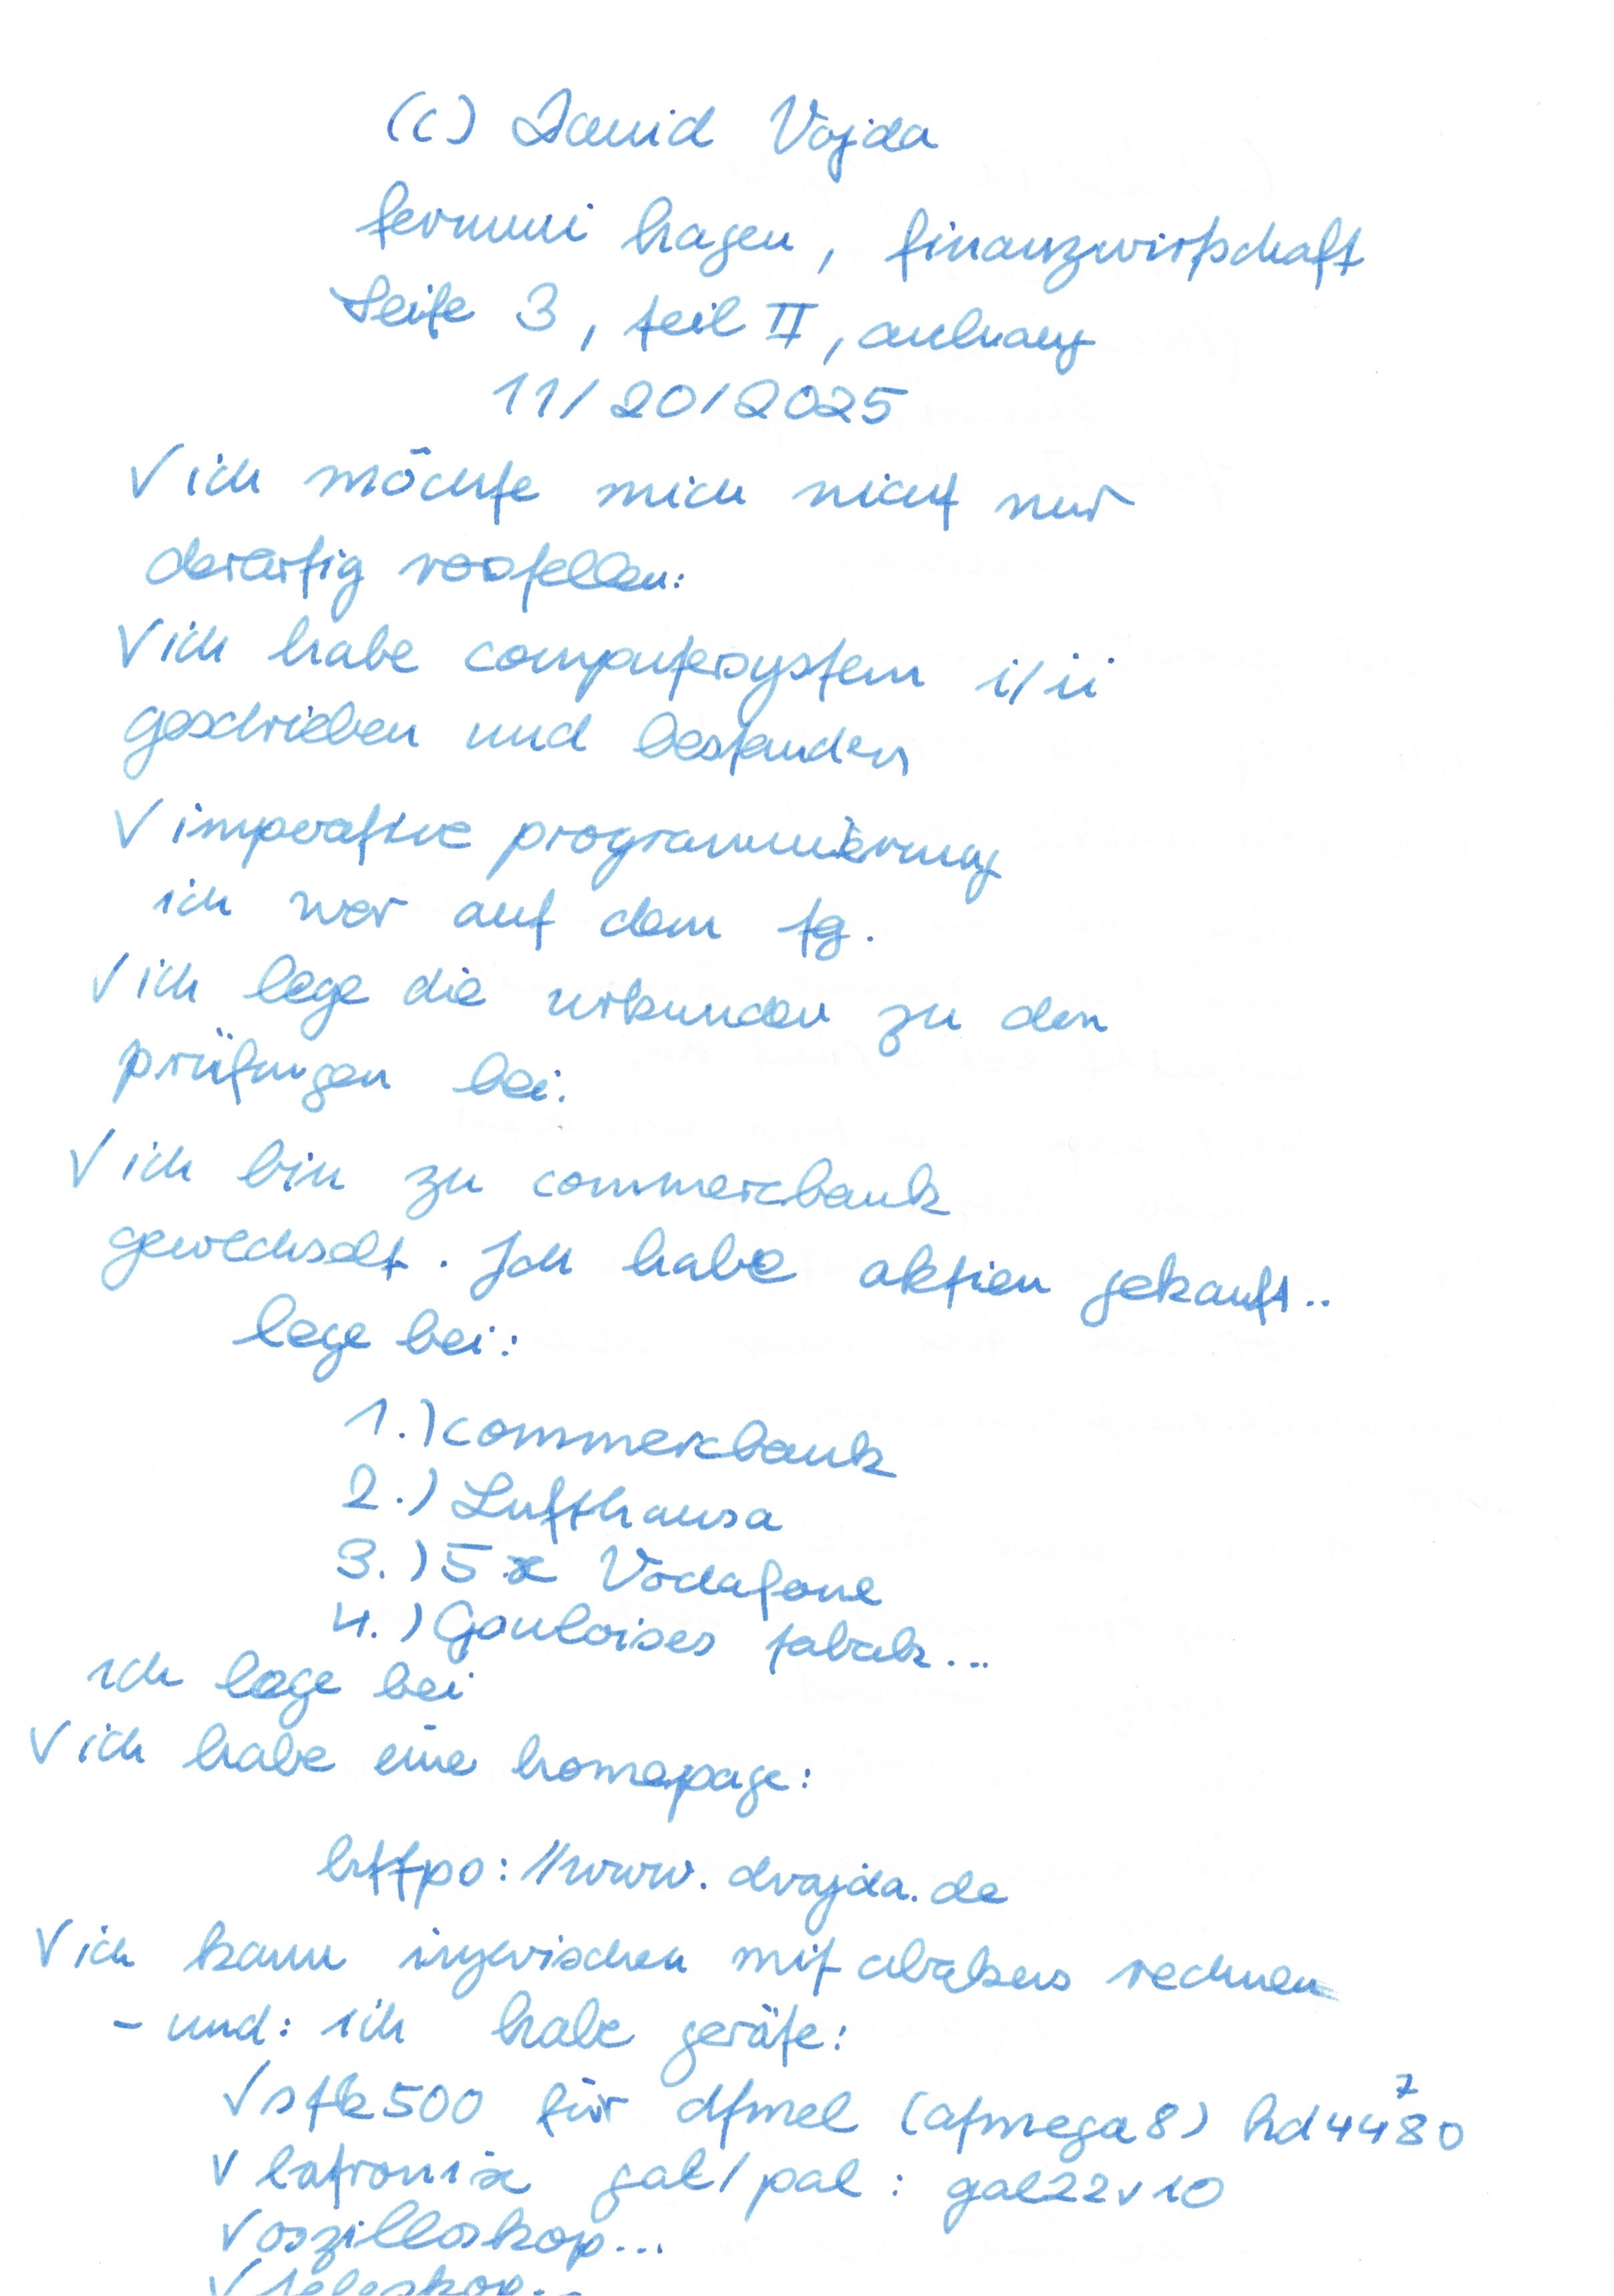 (c) David Vajda
fernuni hagen, finanzwirtschaft
Seite 3, teil II, anhang
11/20/2025
√ ich möchte mich nicht nur
derartig vorstellen:
√ ich habe computersystem i/ii
geschrieben und bestanden
√ imperative programmierung
ich war auf dem tg.
√ ich lege die urkunden zu den
prüfungen bei.
√ ich bin zu commerzbank
gewechselt. Ich habe aktien gekauft..
lege bei:
1.) commerzbank
2.) Lufthansa
3.) 5x Vodafone
4.) Gauloises tabak...
ich lege bei
√ ich habe eine homepage:
https://www.dvajda.de
√ ich kann inzwischen mit abakus rechnen
- und: ich habe geräte:
√ stk500 für atmel (atmega8) hd44780
√ batronix gal/pal: gal22v10
√ oszilloskop...
√ teleskop...